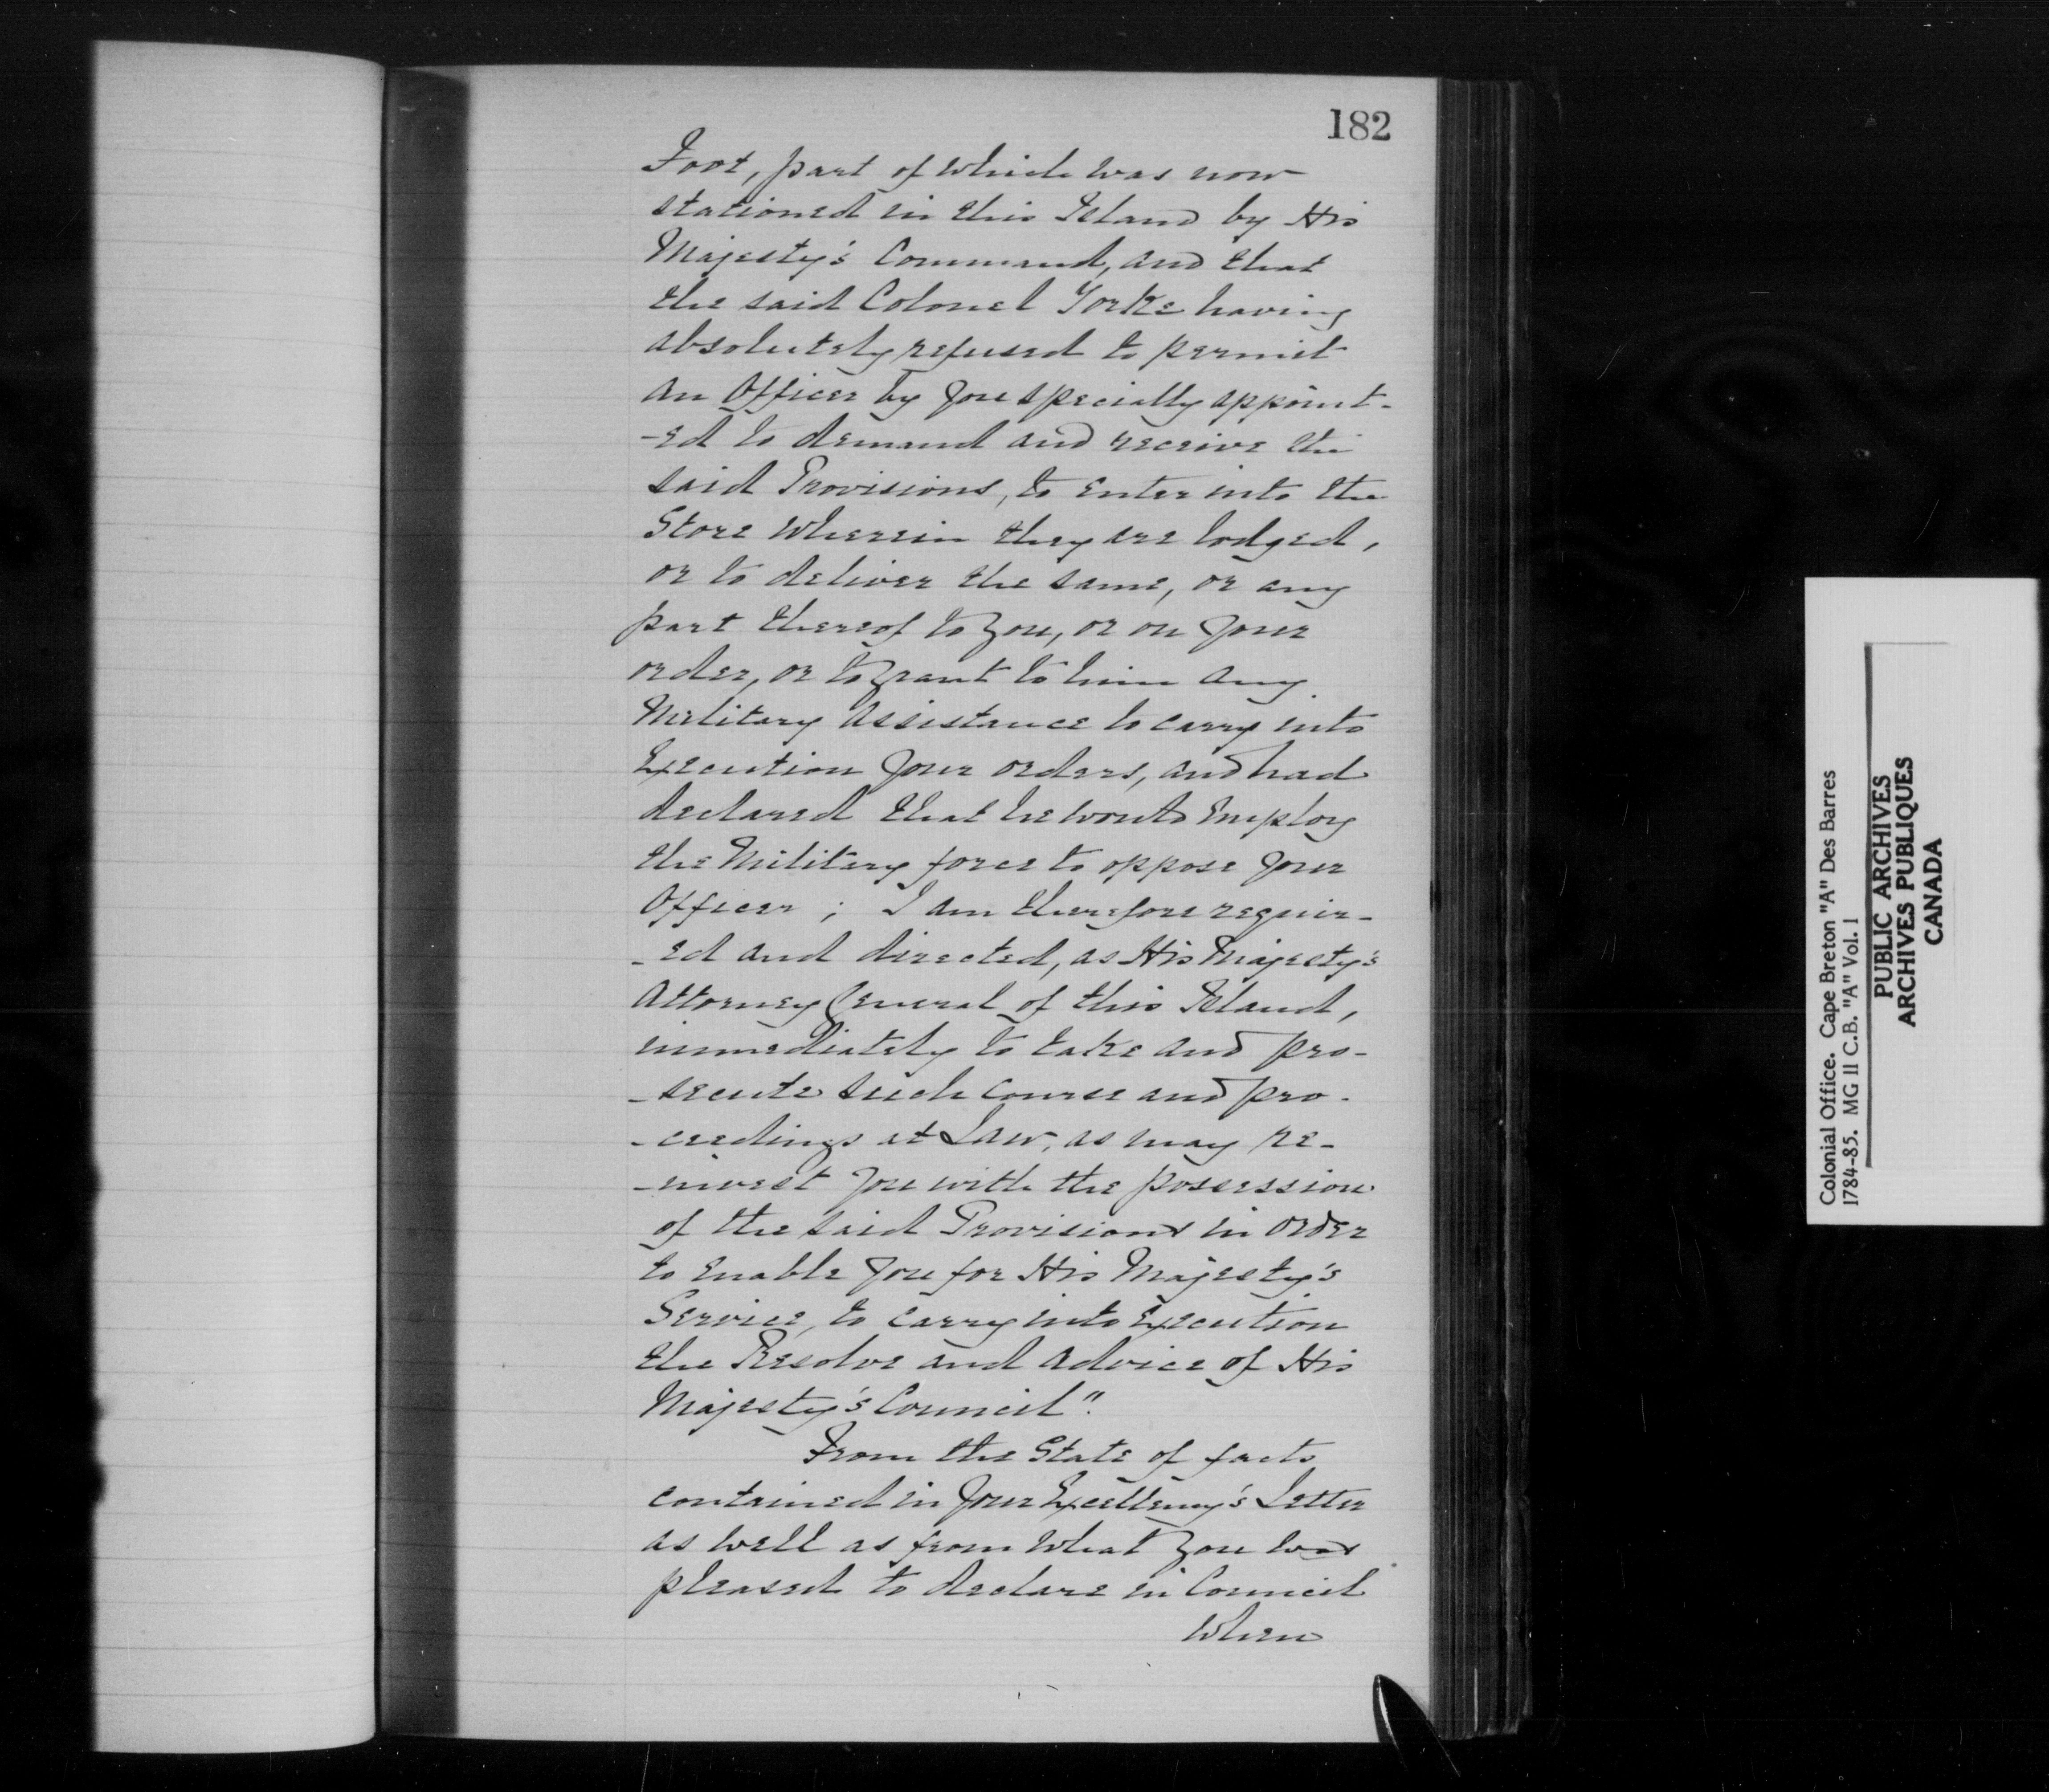 182
Foot, part of which was now
stationed in this Island by His
Majesty's Command, and that
the said Colonel Yorke having
absolutely refused to permit
an Officer by you specially appoint-
-ed to demand and receive the
said Provisions, to enter into the
Store wherein they are lodged,
or to deliver the same, or any
part thereof to you, or on your
order, or to grant to him any
Military assistance to carry into
Execution your orders, and had
declared that he would Employ
the Military force to oppose your
Officer ; I am therefore requir-
-ed and directed, as His Majesty's
Attorney General of this Island,
immediately to take and pro-
-secute such course and pro-
-ceedings at Law, as may re-
-invest you with the possession
of the said Provisions in order
to enable you for His Majesty's
Service, to carry into Execution
the Resolve and advice of His
Majesty's Council".
From the State of facts
contained in your Excellency's Letter
as well as from what you was
pleased to declare in Council
when
Colonial Office. Cape Breton "A" Des Barres
1784-85. MG 11 C.B. "A" Vol. 1
PUBLIC ARCHIVES
ARCHIVES PUBLIQUES
CANADA